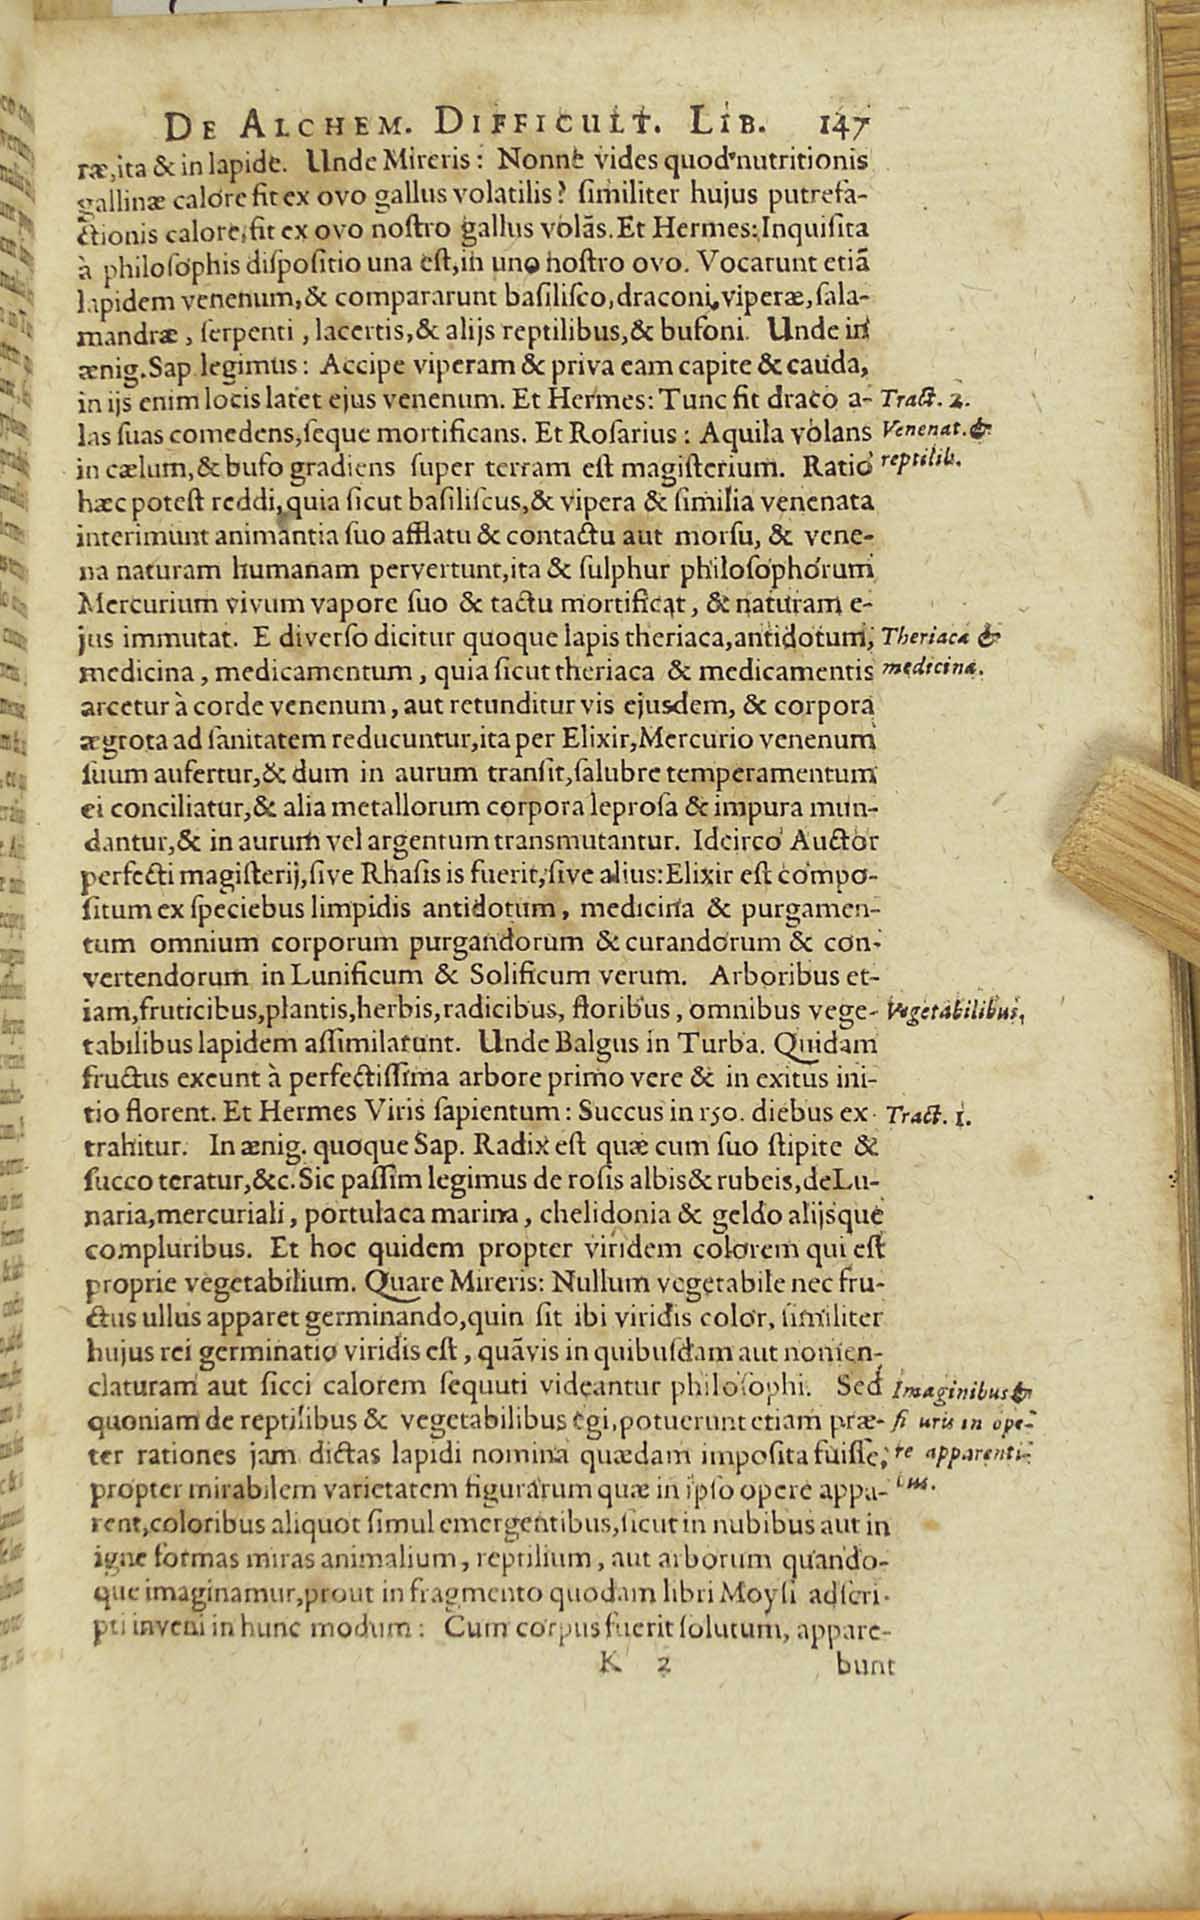 DE ALCHEM. DIFFICULT. LIB. 147
ræ, ita & in lapide. Unde Mireris: Nonne vides quod nutritionis
gallinæ calore fit ex ovo gallus volatilis? ſimiliter hujus putrefa-
ctionis calore, fit ex ovo noſtro gallus volãs. Et Hermes: Inquiſita
à philoſophis diſpoſitio una eſt, in uno noſtro ovo. Vocarunt etiã
lapidem venenum, & compararunt baſiliſco, draconi, viperæ, ſala-
mandræ, ſerpenti, lacertis, & alijs reptilibus, & bufoni. Unde in
ænig. Sap legimus: Accipe viperam & priva eam capite & cauda,
in ijs enim locis latet ejus venenum. Et Hermes: Tunc fit draco a- Tract. 2.
las ſuas comedens, ſeque mortificans. Et Roſarius: Aquila volans Venenat. &
in cælum, & bufo gradiens ſuper terram eſt magiſterium. Ratio reptilib.
hæc poteſt reddi, quia ſicut baſiliſcus, & vipera & ſimilia venenata
interimunt animantia ſuo afflatu & contactu aut morſu, & vene-
na naturam humanam pervertunt, ita & ſulphur philoſophorum
Mercurium vivum vapore ſuo & tactu mortificat, & naturam e-
jus immutat. E diverſo dicitur quoque lapis theriaca, antidotum, Theriaca &
medicina, medicamentum, quia ſicut theriaca & medicamentis medicina.
arcetur à corde venenum, aut retunditur vis ejusdem, & corpora
ægrota ad ſanitatem reducuntur, ita per Elixir, Mercurio venenum
ſuum aufertur, & dum in aurum tranſit, ſalubre temperamentum
ei conciliatur, & alia metallorum corpora leproſa & impura mun-
dantur, & in aurum vel argentum transmutantur. Idcirco Auctor
perfecti magiſterij, ſive Rhaſis is fuerit, ſive alius: Elixir eſt compo-
ſitum ex ſpeciebus limpidis antidotum, medicina & purgamen-
tum omnium corporum purgandorum & curandorum & con-
vertendorum in Lunificum & Solificum verum. Arboribus et-
iam, fruticibus, plantis, herbis, radicibus, floribus, omnibus vege- Vegetabilibus,
tabilibus lapidem aſſimilarunt. Unde Balgus in Turba. Quidam
fructus exeunt à perfectiſſima arbore primo vere & in exitus ini-
tio florent. Et Hermes Viris ſapientum: Succus in 150. diebus ex- Tract. 1.
trahitur. In ænig. quoque Sap. Radix eſt quæ cum ſuo ſtipite &
ſucco teratur, &c. Sic paſſim legimus de roſis albis & rubeis, de Lu-
naria, mercuriali, portulaca marina, chelidonia & geldo alijsque
compluribus. Et hoc quidem propter viridem colorem qui eſt
proprie vegetabilium. Quare Mireris: Nullum vegetabile nec fru-
ctus ullus apparet germinando, quin ſit ibi viridis color, ſimiliter
hujus rei germinatio viridis eſt, quãvis in quibuſdam aut nomen-
claturam aut ſicci calorem ſequuti videantur philoſophi. Sed Imaginibus &
quoniam de reptilibus & vegetabilibus egi, potuerunt etiam præ- fi uris in ope-
ter rationes jam dictas lapidi nomina quædam impoſita fuiſſe, re apparenti-
propter mirabilem varietatem figurarum quæ in ipſo opere appa- bus.
rent, coloribus aliquot ſimul emergentibus, ſicut in nubibus aut in
igne formas miras animalium, reptilium, aut arborum quando-
que imaginamur, prout in fragmento quodam libri Moyſi adſcri-
pti inveni in hunc modum: Cum corpus fuerit ſolutum, appare-
K 2 bunt